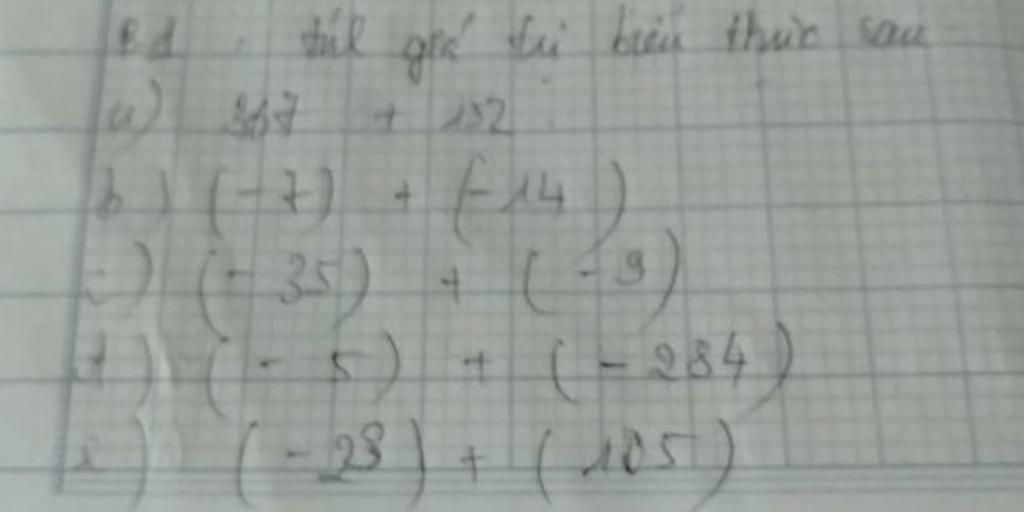 tính giá trị biểu thức sau
a) 367 + 152
b) (-7) + (-14)
c) (- 35) + (-9)
d) (- 5) + (- 284)
(-28) + (105)